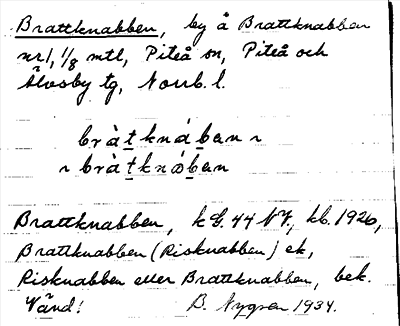 Brattknabben, by å Brattknabben
nr 1, 1/8 mtl, Piteå sn, Piteå och
Älvsby tg, Norrb. l.
bràtknában ~
~ bràtknóban
Brattknabben, k G. 44 NV., kb. 1926,
Brattknabben (Risknabben) ek,
Risknabben eller Brattknabben, bek.
Vänd! B. Nygren 1934.